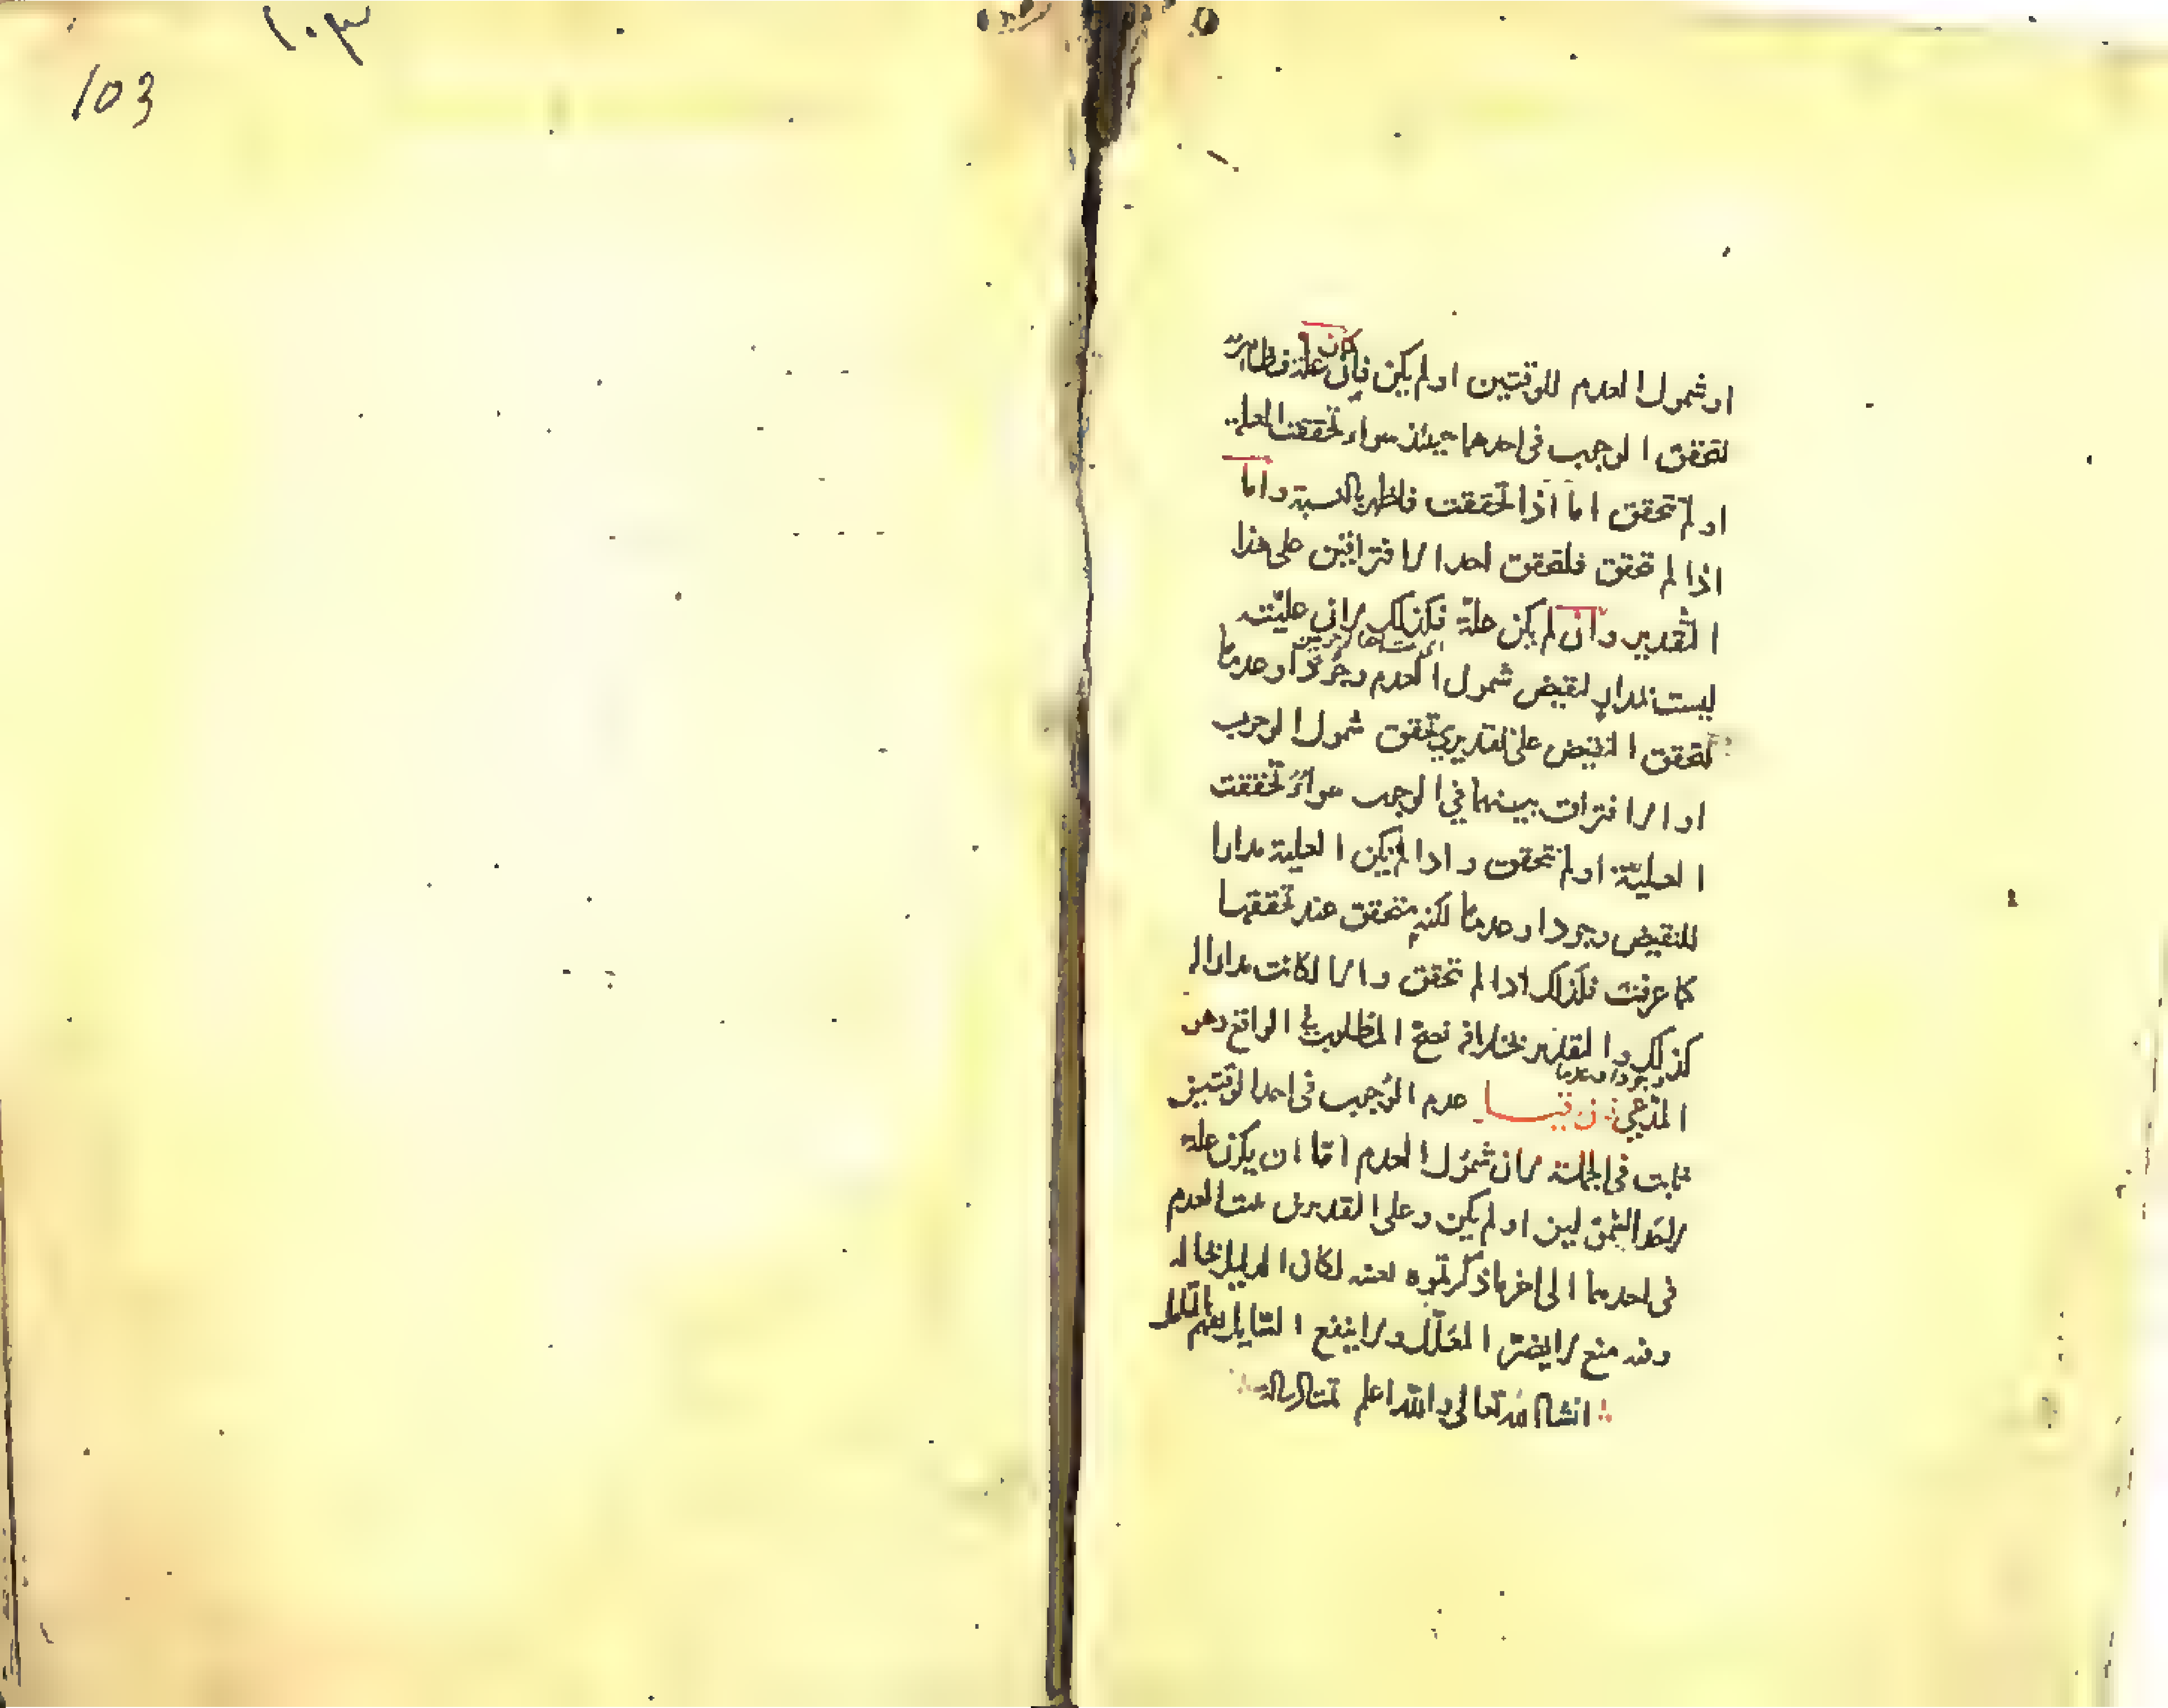 ١٠٣
103
او شمول العدم للوقتين او لم يكن فان كان علة فظاهر
لتحقق الوجوب فى احدهما حينئذ سواء تحققت العلية
او لم تحقق اما اذا تحققت فلظهر بالنسبة واما
اذا لم تحقق فلتحقق احد الافتراقين على هذا
التقدير وان لم يكن علة فكذلك لان عليته
ليست بمدار لنقيض شمول العدم وجودا وعدما
لتحقق النقيض على تقديري تحقق شمول الوجوب
او الافتراق بينهما في الوجوب سواء تحققت
العلية او لم تحقق واذا لم يكن العلية مدارا
للنقيض وجودا وعدما لكنه متحقق عند تحققها
كما عرفت فكذلك اذا لم تحقق والا لكانت مدارا له
وجودا وعدما
كذلك والتقدير بخلافه فصح المطلوب في الواقع وهو
المدعى فان قيل عدم الوجوب فى احد الوقتين
ثابت فى الجملة لان شمول العدم اما ان يكون علة
لاحد الشمولين او لم يكن وعلى التقديرين ثبت العدم
فى احدهما الى اخر ما ذكرتموه لعينه لكان الدليل بحاله
وفيه منع لا يضر المعلل ولا ينفع السايل بالتامل
انشاء الله تعالى والله اعلم تمت الرسالة